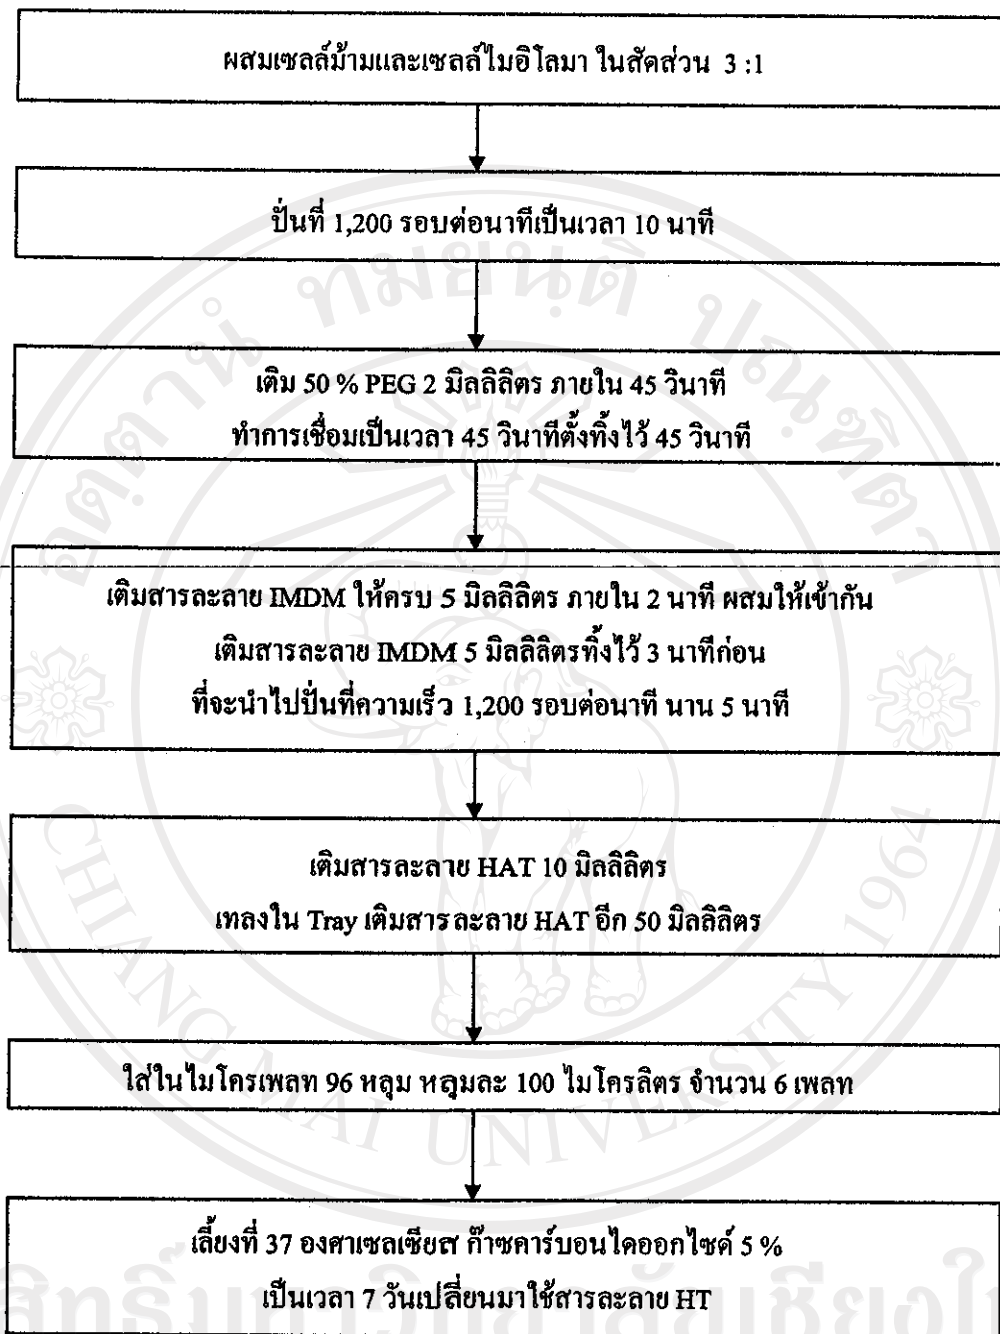 ผสมเซลล์ม้ามและเซลล์ไมอิโลมา ในสัดส่วน 3 :1
ปั่นที่ 1,200 รอบต่อนาทีเป็นเวลา 10 นาที
เติม 50 % PEG 2 มิลลิลิตร ภายใน 45 วินาที
ทำการเชื่อมเป็นเวลา 45 วินาทีตั้งทิ้งไว้ 45 วินาที
เติมสารละลาย IMDM ให้ครบ 5 มิลลิลิตร ภายใน 2 นาที ผสมให้เข้ากัน
เติมสารละลาย IMDM 5 มิลลิลิตรทิ้งไว้ 3 นาทีก่อน
ที่จะนำไปปั่นที่ความเร็ว 1,200 รอบต่อนาที นาน 5 นาที
เติมสารละลาย HAT 10 มิลลิลิตร
เทลงใน Tray เติมสารละลาย HAT อีก 50 มิลลิลิตร
ใส่ในไมโครเพลท 96 หลุม หลุมละ 100 ไมโครลิตร จำนวน 6 เพลท
เลี้ยงที่ 37 องศาเซลเซียส ก๊าซคาร์บอนไดออกไซด์ 5 %
เป็นเวลา 7 วันเปลี่ยนมาใช้สารละลาย HT
อตฺตานํ ทมยนฺติ ปณฺฑิตา
CHIANG MAI UNIVERSITY 1964